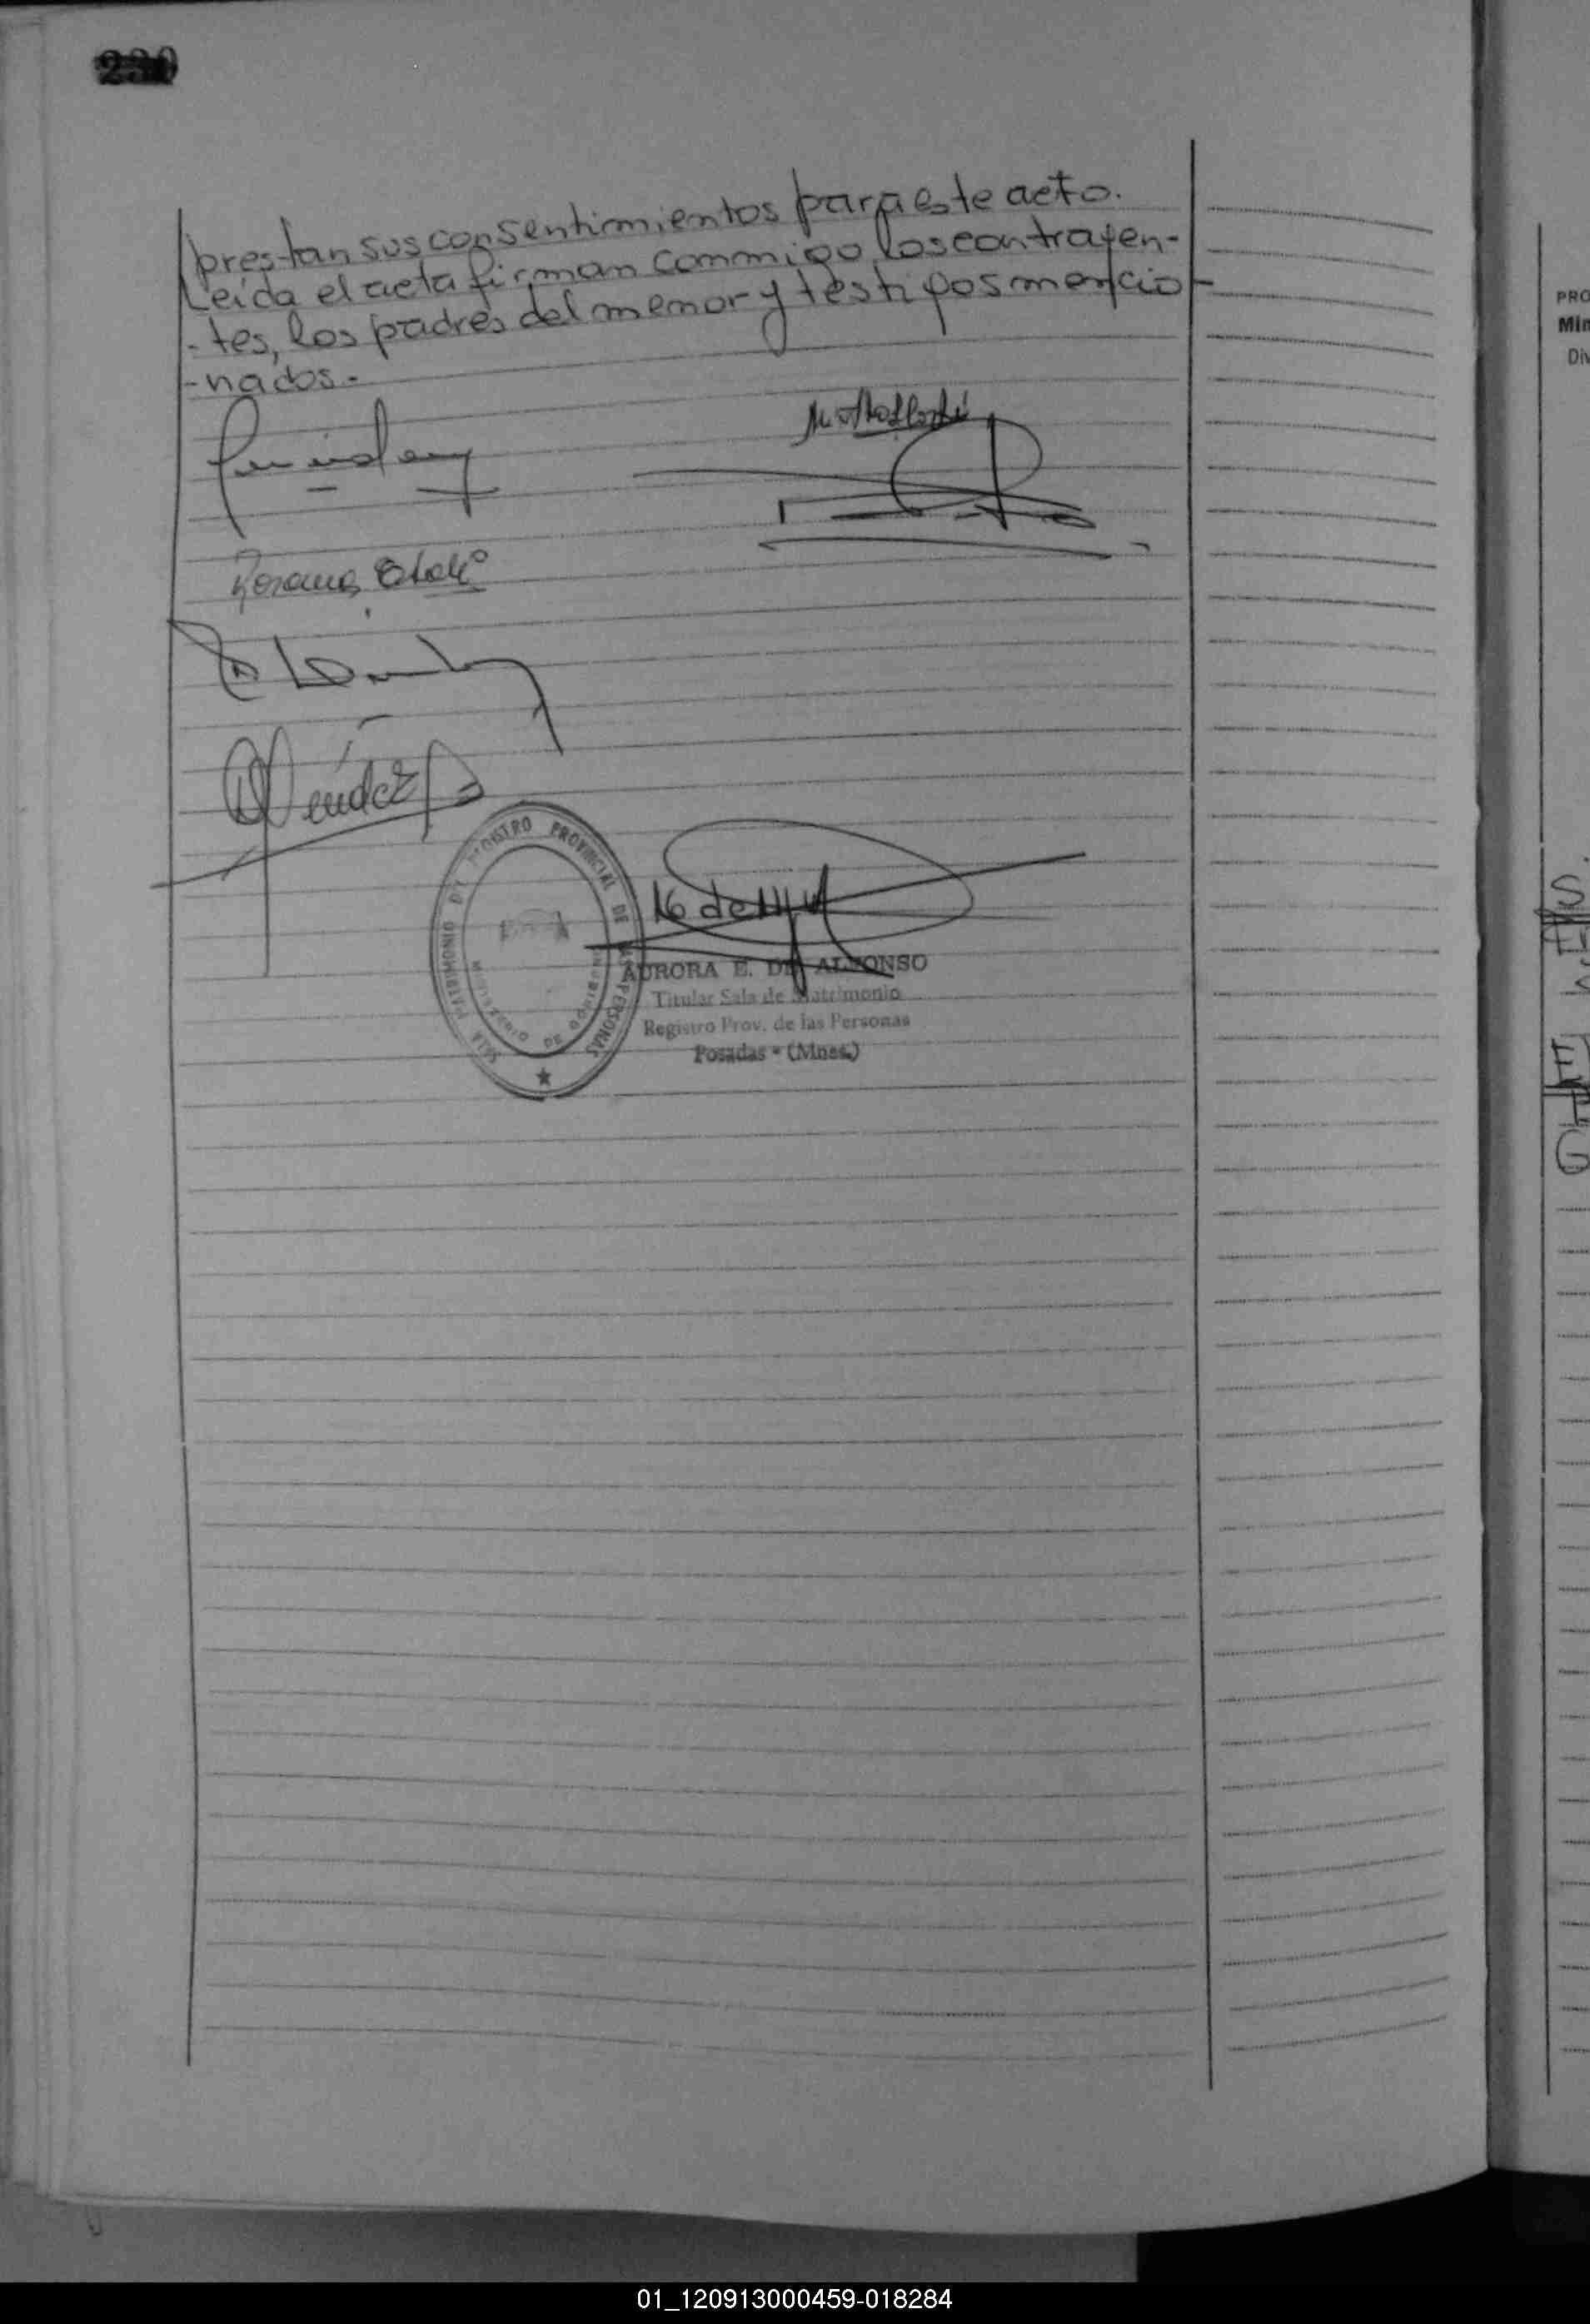 prestan sus consentimientos para este acto.
Leída el acta firman commigo los contrayen-
-tes, los padres del menor y testigos mencio-
-nados.-
Méndez
SALA MATRIMONIO DEL REGISTRO PROVINCIAL DE LAS PERSONAS
MINISTERIO DE GOBIERNO
AURORA E. DE ALFONSO
Titular Sala de Matrimonio
Registro Prov. de las Personas
Posadas - (Mnes.)
PRO
Min
Div
01_120913000459-018284